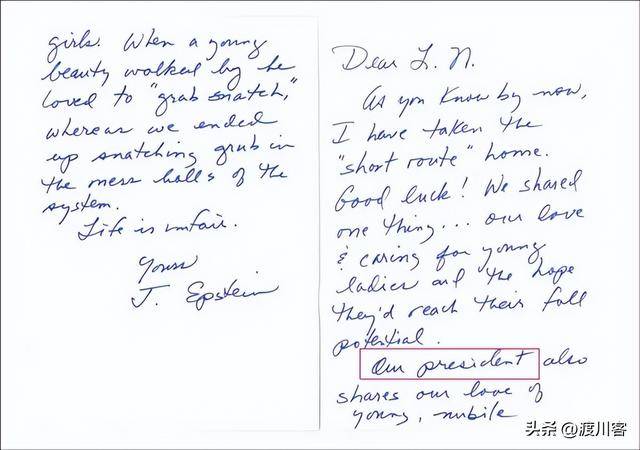 Dear L. N.
As you know by now,
I have taken the
"short route" home.
Good luck! We shared
one thing... our love
& caring for young
ladies and the hope
they'd reach their full
potential.
Our president also
shares our love of
young, nubile
girls. When a young
beauty walked by he
loved to "grab snatch,"
whereas we ended
up snatching grub in
the mess halls of the
system.
Life is unfair.
Yours
J. Epstein
头条 @渡川客